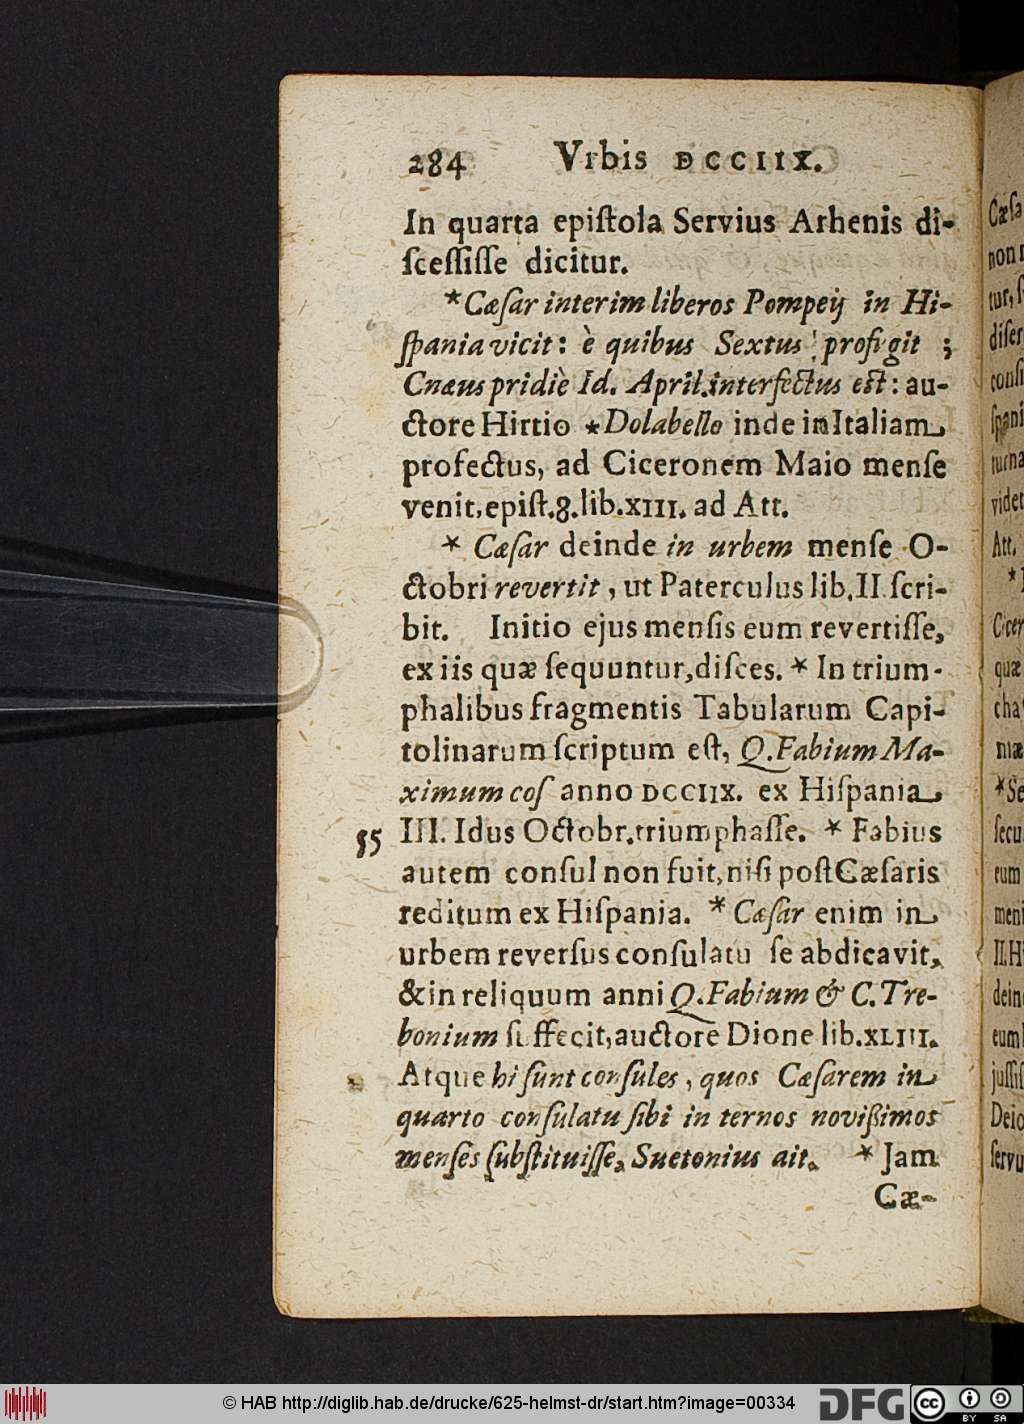 284 Vrbis DCCIIX.
In quarta epiſtola Servius Athenis di-
ſceſſiſſe dicitur.
*Cæſar interim liberos Pompeij in Hi-
ſpania vicit: è quibus Sextus profugit ;
Cnæus pridiè Id. April.interfectus eſt: au-
ctore Hirtio *Dolabella inde in Italiam
profectus, ad Ciceronem Maio menſe
venit.epiſt.8.lib.XIII. ad Att.
* Cæſar deinde in urbem menſe O-
ctobri revertit, ut Paterculus lib.II ſcri-
bit. Initio ejus menſis eum revertiſſe,
ex iis quæ ſequuntur,diſces. * In trium-
phalibus fragmentis Tabularum Capi-
tolinarum ſcriptum eſt, Q.Fabium Ma-
ximum coſ anno DCCIIX. ex Hiſpania
55 III. Idus Octobr.triumphaſſe. * Fabius
autem conſul non fuit,niſi poſt Cæſaris
reditum ex Hiſpania. * Cæſar enim in
urbem reverſus conſulatu ſe abdicavit,
& in reliquum anni Q.Fabium & C.Tre-
bonium ſuffecit,auctore Dione lib.XLIII.
Atque hi ſunt conſules, quos Cæſarem in
quarto conſulatu ſibi in ternos novißimos
menſes ſubſtituiſſe, Suetonius ait. * Jam
Cæ-
Cæſa
non r
tur, ſ
diſer
conſi
ſpani
turna
videt
Att.
Cicer
quæ
cha
niæ
*Se
ſecu
eum
meni
II.H
dein
eum
juſſiſ
Deio
ſervu
© HAB http://diglib.hab.de/drucke/625-helmst-dr/start.htm?image=00334
DFG
cc BY SA